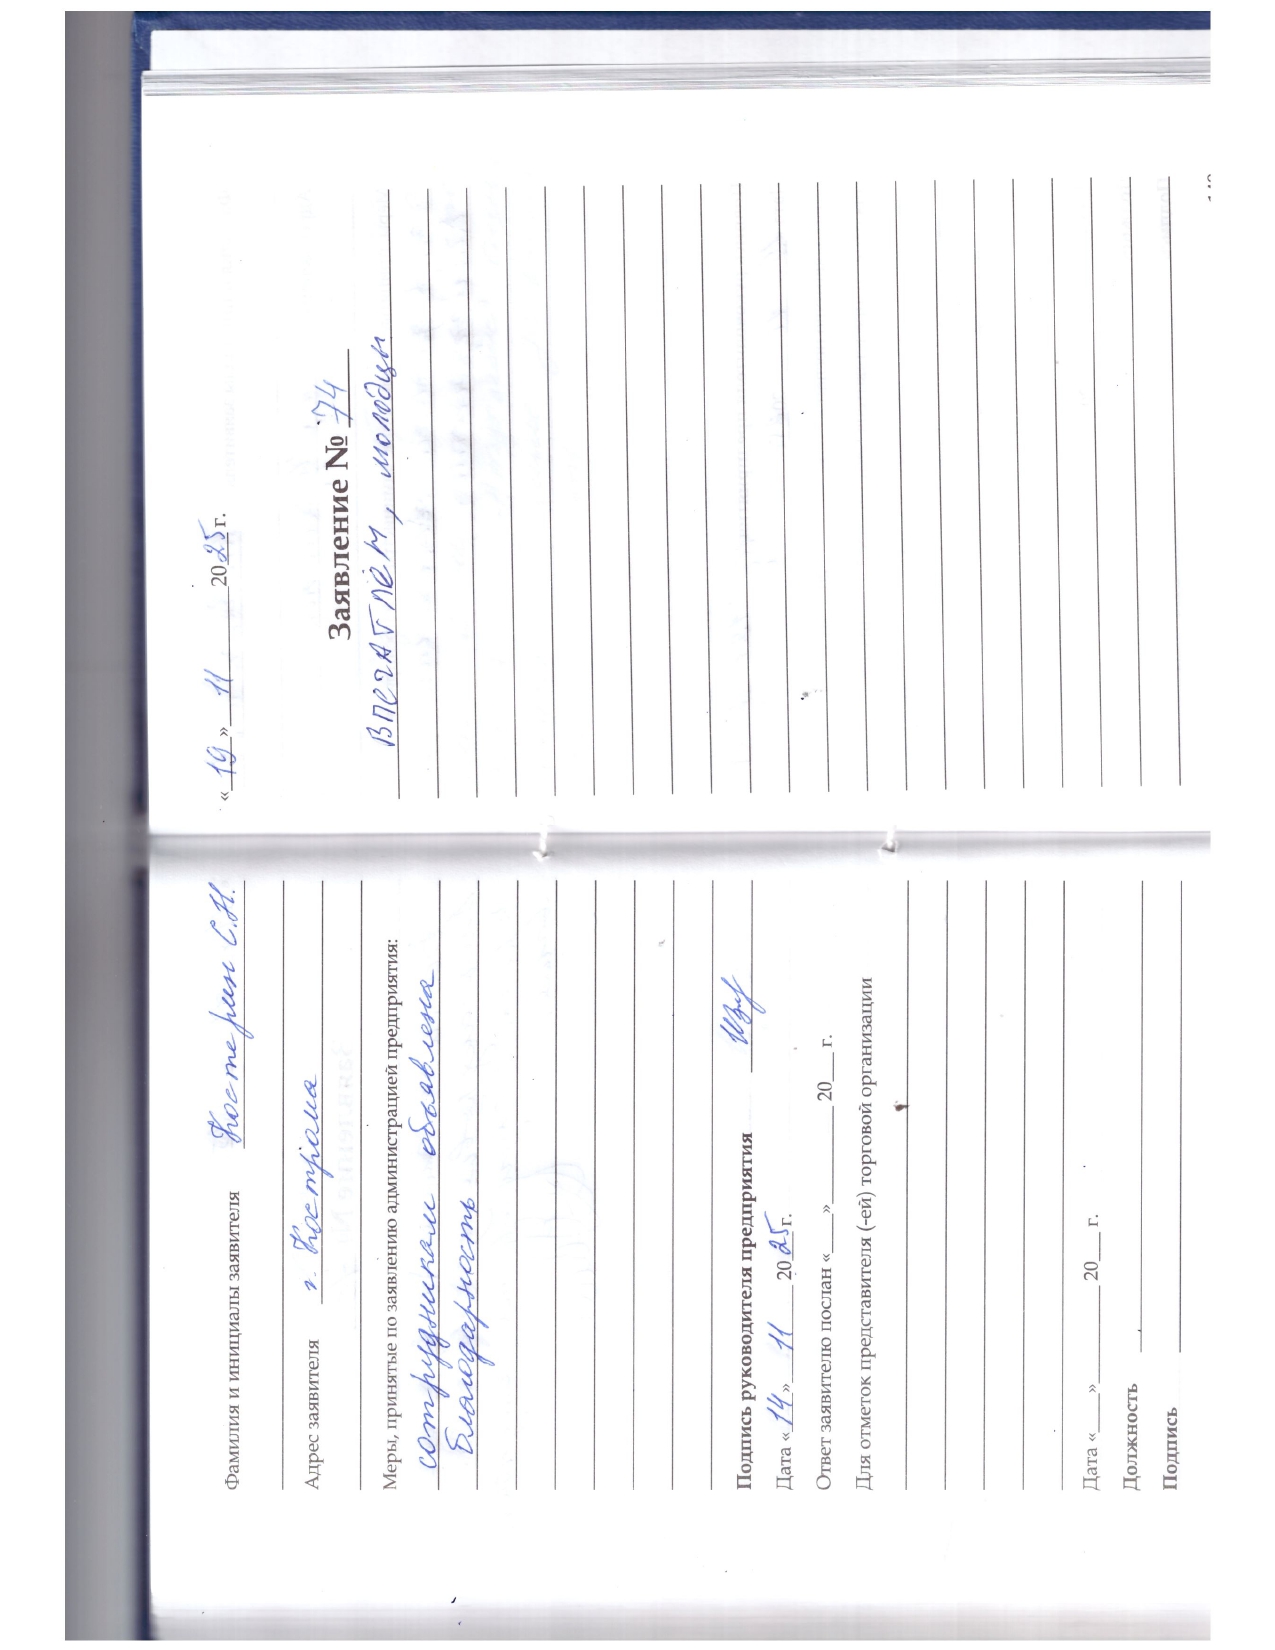 Фамилия и инициалы заявителя Костерин С.Н.
Адрес заявителя г. Кострома
Меры, принятые по заявлению администрацией предприятия:
сотрудникам объявлена
благодарность
Подпись руководителя предприятия
Дата «14» 11 2025г.
Ответ заявителю послан «___» ________ 20___ г.
Для отметок представителя (-ей) торговой организации
Дата «___» ________ 20___ г.
Должность
Подпись
«19» 11 2025г.
Заявление № 74
Впечатлён, молодцы